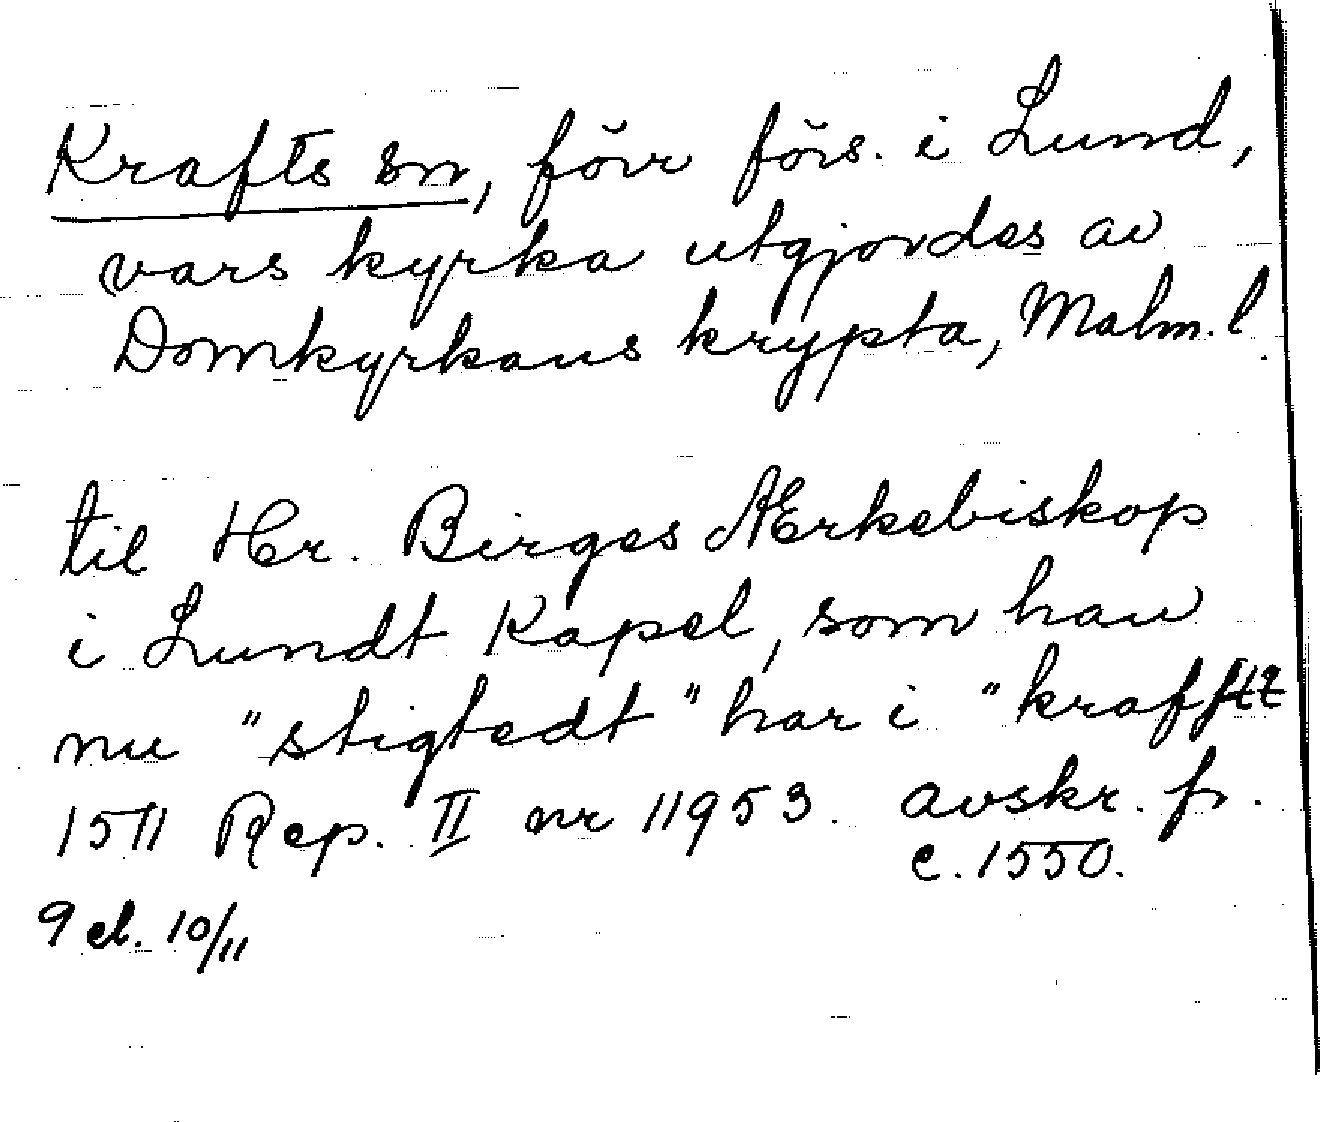 Krafts sn, förr förs. i Lund,
vars kyrka utgjordes av
Domkyrkans krypta, Malm. l.
til Hr. Birges Ærkebiskop
i Lundt Kapel, som han
nu "stigtedt" har i "krafftz
1511 Rep. II nr 11953. avskr. fr.
c. 1550.
9 el. 10/11